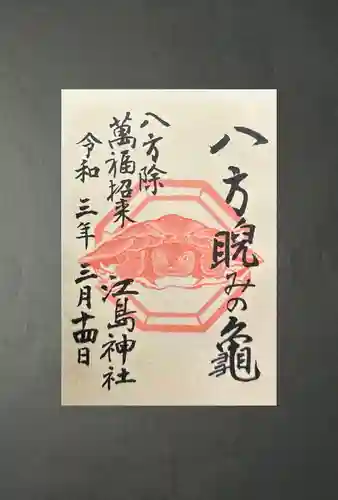 八方睨みの亀
八方除
萬福招来
江島神社
令和三年三月十四日